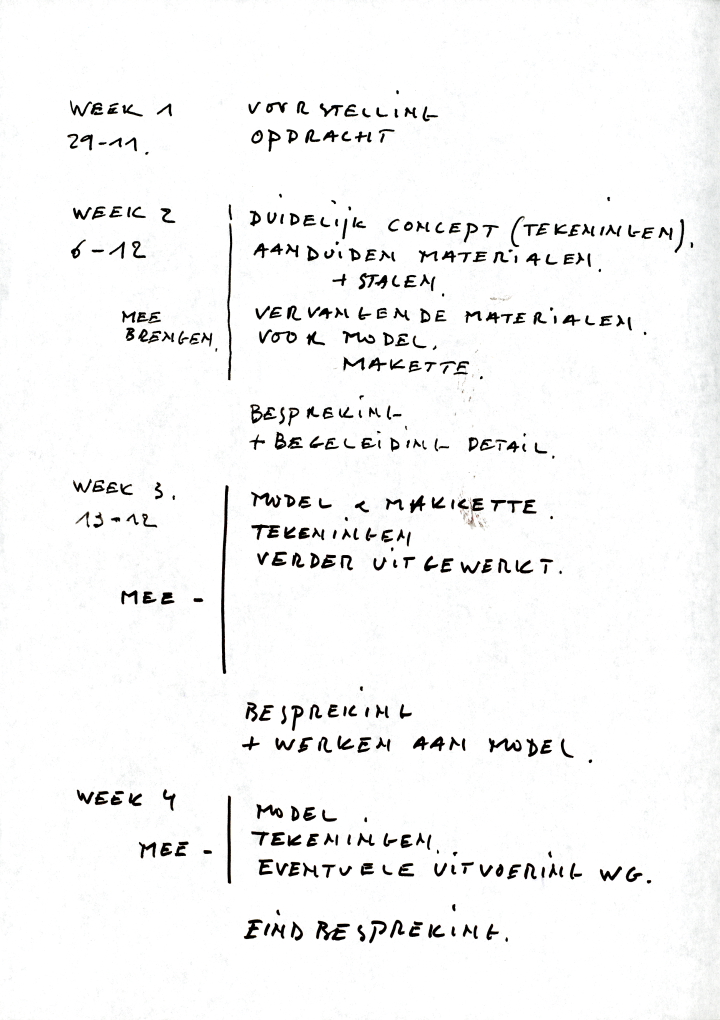 WEEK 1 VOORSTELLING
29-11. OPDRACHT
WEEK 2 DUIDELIJK CONCEPT (TEKENINGEN).
6-12 AANDUIDEN MATERIALEN.
+ STALEN.
MEE VERVANGENDE MATERIALEN.
BRENGEN. VOOR MODEL.
MAKETTE.
BESPREKING
+ BEGELEIDING DETAIL.
WEEK 3. MODEL & MAKKETTE.
13-12 TEKENINGEN
VERDER UITGEWERKT.
MEE -
BESPREKING
+ WERKEN AAN MODEL.
WEEK 4 MODEL.
MEE - TEKENINGEN.
EVENTUELE UITVOERING WG.
EINDBESPREKING.